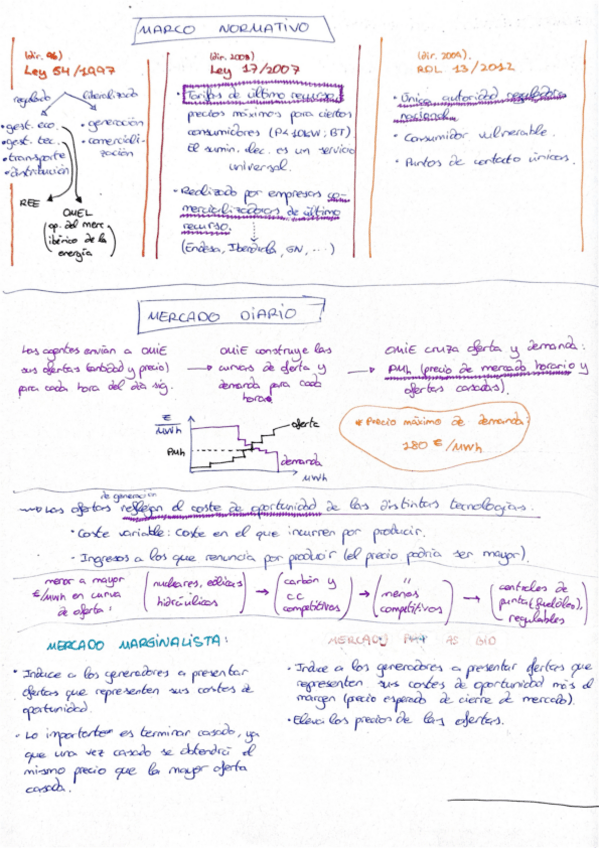 MARCO NORMATIVO
(dir. 96)
Ley 54/1997
regulado
liberalizado
• gest. eco.
• gest. tec.
• transporte
• distribución
• generación
• comerciali-
zación
REE
OMEL
(op. del merc.
ibérico de la
energía)
(dir. 2003)
Ley 17/2007
• Tarifas de último recurso
precios máximos para ciertos
consumidores (P<10kW; BT).
El sumin. elec. es un servicio
universal.
• Realizado por empresas co-
mercializadoras de último
recurso.
(Endesa, Iberdrola, GN, ...)
(dir. 2009)
RDL 13/2012
• Única autoridad reguladora
nacional.
• Consumidor vulnerable.
• Puntos de contacto únicos.
MERCADO DIARIO
Los agentes envían a OMIE
sus ofertas (cantidad y precio)
para cada hora del día sig.
→ OMIE construye las
curvas de oferta y
demanda para cada
hora.
→ OMIE cruza oferta y demanda:
PMh (precio de mercado horario) y
ofertas casadas.
€
MWh
PMh
oferta
demanda
MWh
* Precio máximo de demanda:
180 €/MWh
de generación
Las ofertas reflejan el coste de oportunidad de las distintas tecnologías.
• Coste variable: Coste en el que incurren por producir.
• Ingresos a los que renuncia por producir (el precio podría ser mayor).
menor a mayor
€/MWh en curva
de oferta:
(nucleares, eólicas
hidráulicas)
→ (carbón y
c.c.
competitivos)
→ ( "
menos
competitivos)
→ (centrales de
punta (fuelóleo),
regulables)
MERCADO MARGINALISTA:
• Induce a los generadores a presentar
ofertas que representen sus costes de
oportunidad.
• Lo importante es terminar casado, ya
que una vez casado se obtendrá el
mismo precio que la mayor oferta
casada.
MERCADO PAY AS BID
• Induce a los generadores a presentar ofertas que
representen sus costes de oportunidad más el
margen (precio esperado de cierre de mercado).
• Eleva los precios de las ofertas.